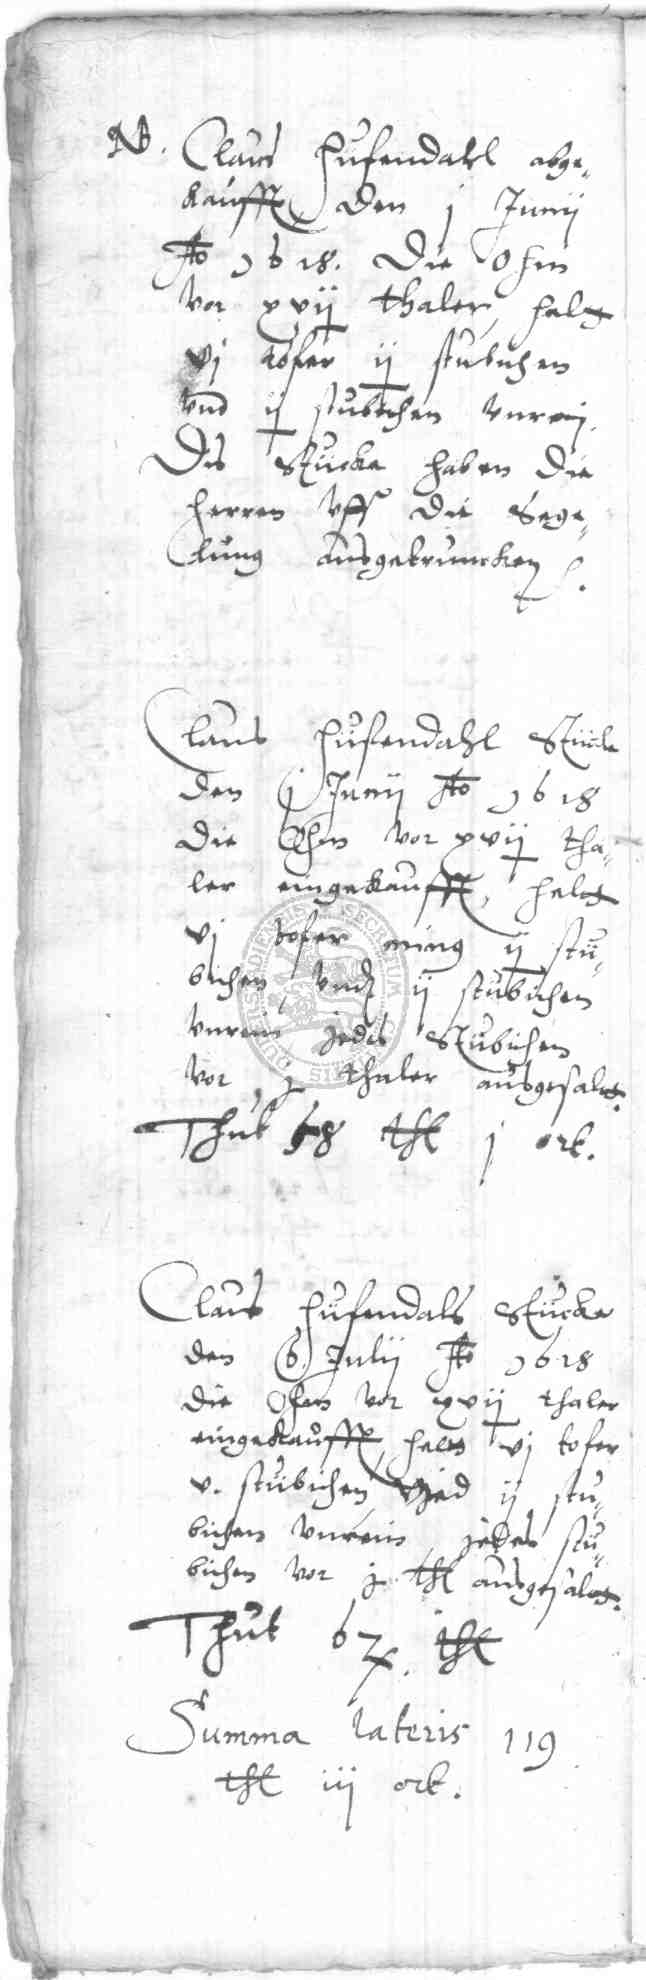 NB. Claus Hufendahl abge-
kaufft, den j Junij
Ao 1618. Die Ohm
vor xvij thaler, halt
vj tofer ij stubichen
vnd ij stubichen vnrein.
Dis Stücke haben die
herren vff die Sege-
lung ausgetruncken

Claus Hufendahl Stücke
den j Junij Ao 1618
die Ohm vor xvij tha-
ler eingekaufft, halt
vj tofer ij stu-
bichen vnd ij stubichen
vnrein jedes Stubichen
vor thaler
Thut thl j ort.

Claus Hufendals Stücke
den 6. Julij Ao 1618
die Ohm vor xvij thaler
eingekaufft, halt vj tofer
v. stubichen vnd ij stu-
bichen vnrein jedes stu-
bichen vor thl
Thut thl
Summa lateris 119
thl iij ort.
SECRETUM